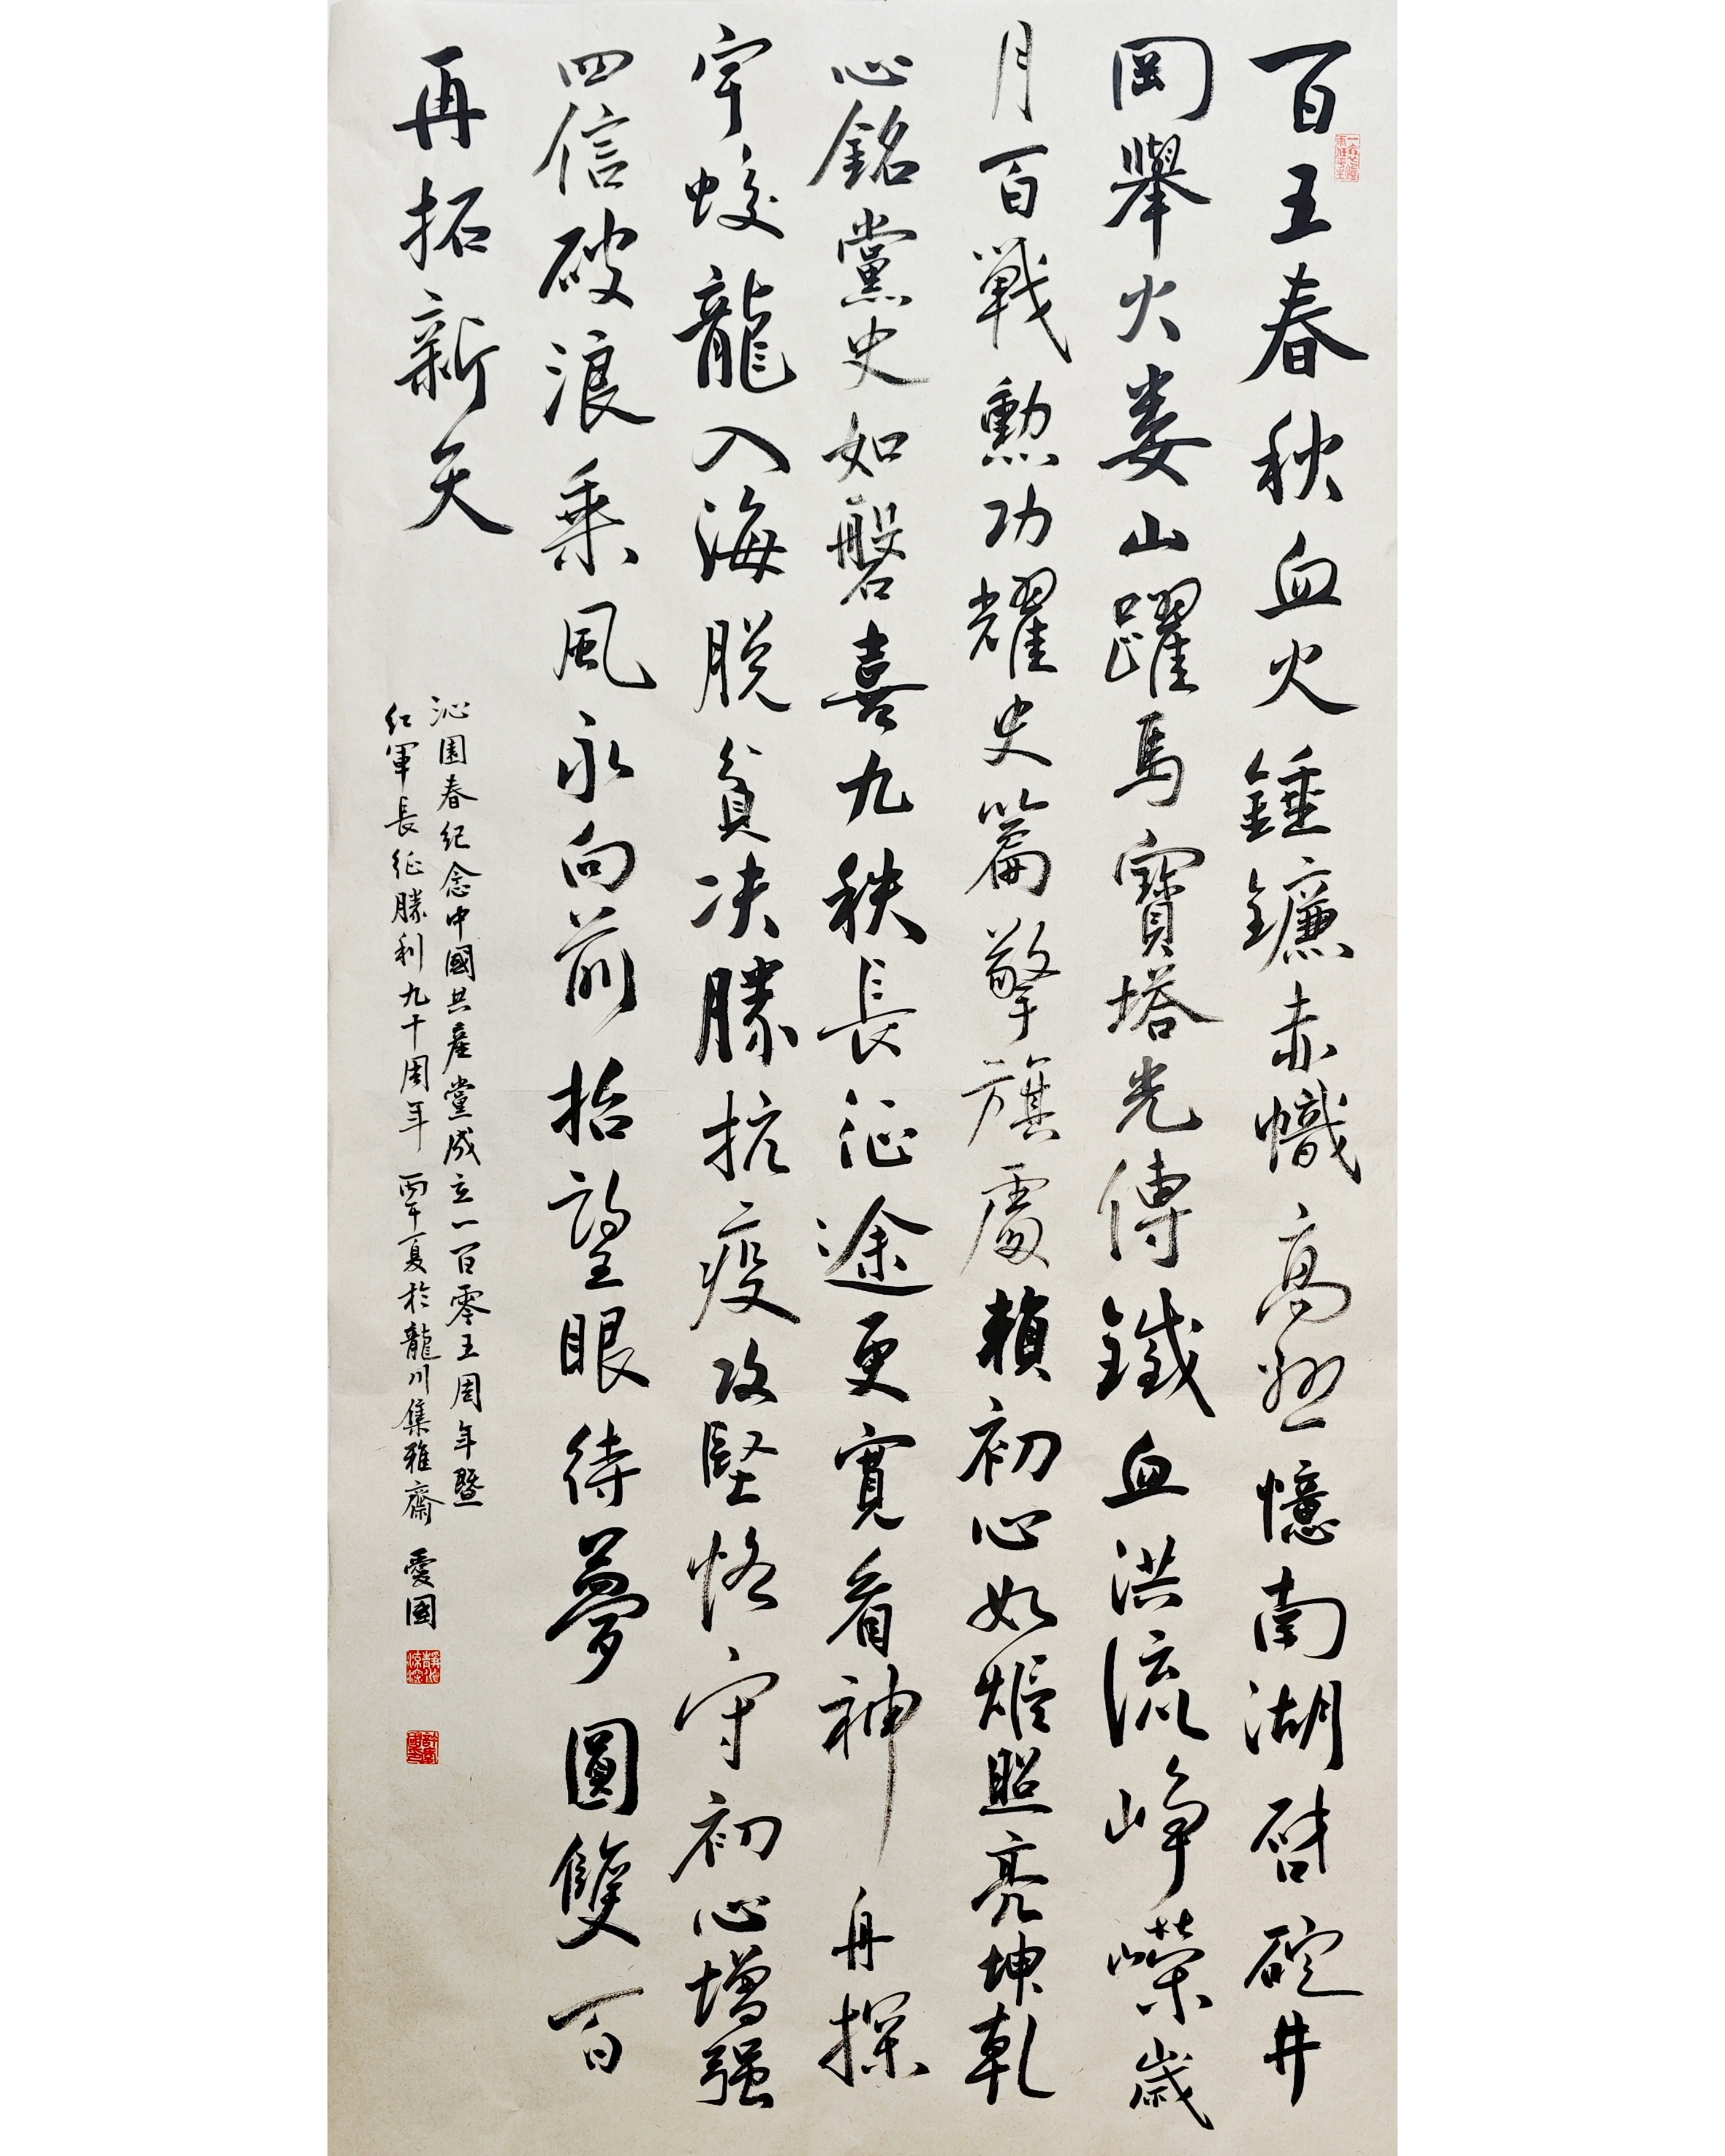 百五春秋血火錘鐮赤幟高懸憶南湖啓碇井
岡舉火婁山躍馬寶塔光傳鐵血洪流崢嶸歲
月百戰勲功耀史篇擎旗處賴初心如炬照亮坤乾
心銘黨史如磐喜九秩長征途更寬看神舟探
宇蛟龍入海脱貧决勝抗疫攻堅恪守初心增强
四信破浪乘風永向前抬望眼待夢圓雙百
再拓新天
沁園春紀念中國共產黨成立一百零五周年暨
紅軍長征勝利九十周年 丙午夏於龍川集雅齋 愛國